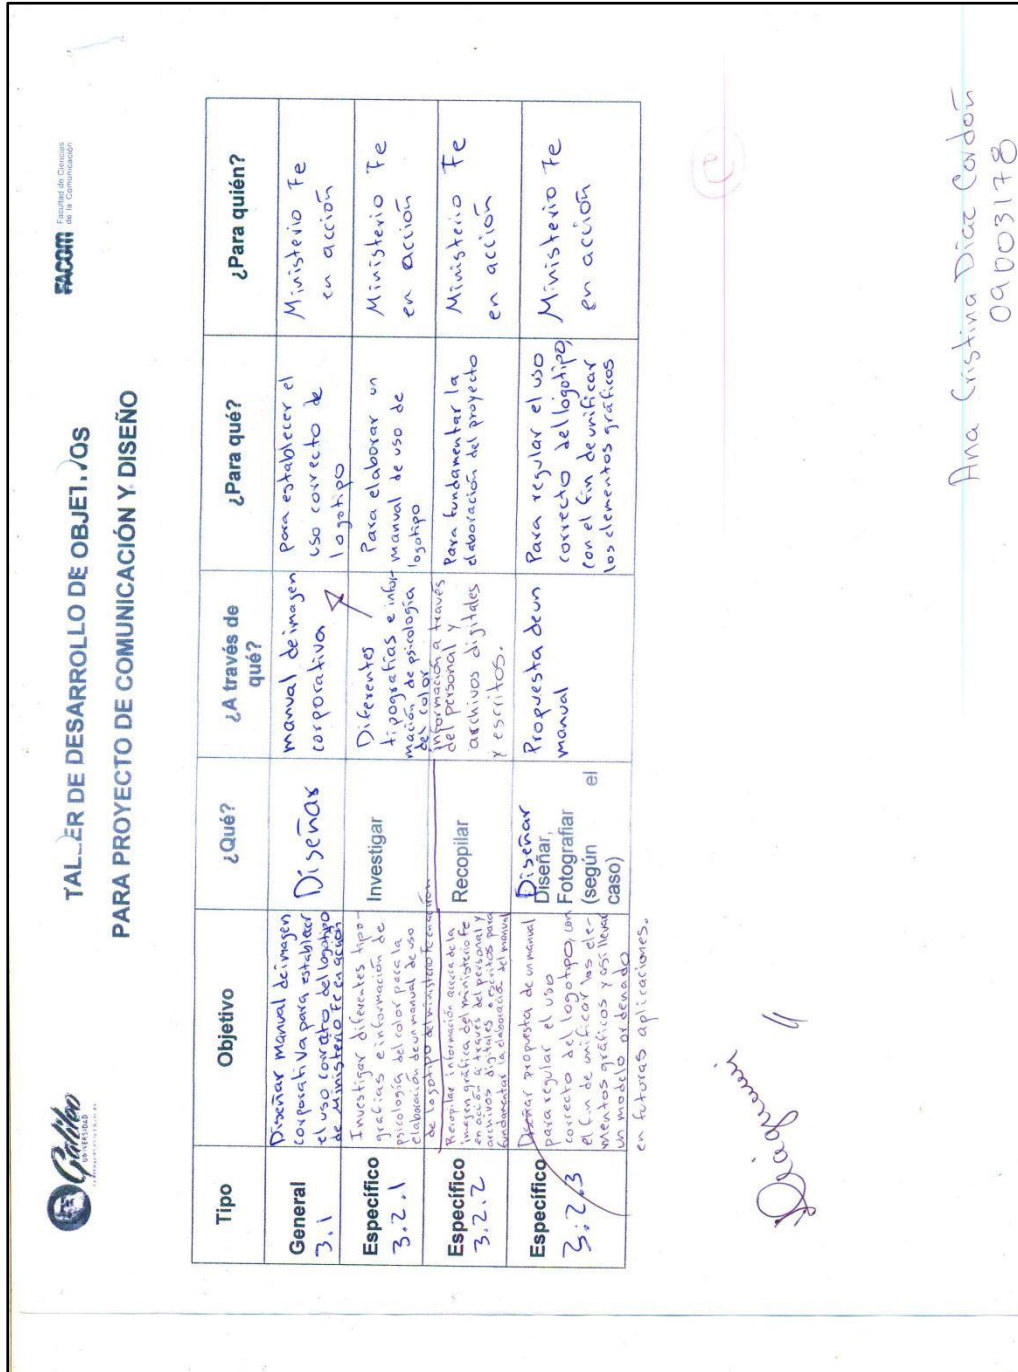 Galileo
UNIVERSIDAD
FACOM Facultad de Ciencias
de la Comunicación
TALLER DE DESARROLLO DE OBJETIVOS
PARA PROYECTO DE COMUNICACIÓN Y DISEÑO
Tipo
Objetivo
¿Qué?
¿A través de
qué?
¿Para qué?
¿Para quién?
General
3.1
Diseñar manual de imagen
corporativa para establecer
el uso correcto del logotipo
de Ministerio Fe en acción
Diseñar
manual de imagen
corporativa
para establecer el
uso correcto de
logotipo
Ministerio Fe
en acción
Específico
3.2.1
Investigar diferentes tipo-
grafías e información de
psicología del color para la
elaboración de un manual de uso
de logotipo del ministerio Fe en acción
Investigar
Diferentes
tipografías e infor-
mación de psicología
del color
Para elaborar un
manual de uso de
logotipo
Ministerio Fe
en acción
Específico
3.2.2
Recopilar información acerca de la
imagen gráfica del ministerio Fe
en acción a través del personal y
archivos digitales o escritos para
fundamentar la elaboración del manual
Recopilar
información a través
del personal y
archivos digitales
y escritos.
Para fundamentar la
elaboración del proyecto
Ministerio Fe
en acción
Específico
3.2.3
Diseñar propuesta de un manual
para regular el uso
correcto del logotipo, con
el fin de unificar los ele-
mentos gráficos y así llevar
un modelo ordenado
en futuras aplicaciones.
Diseñar
Diseñar,
Fotografiar
(según el
caso)
Propuesta de un
manual
Para regular el uso
correcto del logotipo,
con el fin de unificar
los elementos gráficos
Ministerio Fe
en acción
Ana Cristina Díaz Cardón
09003178